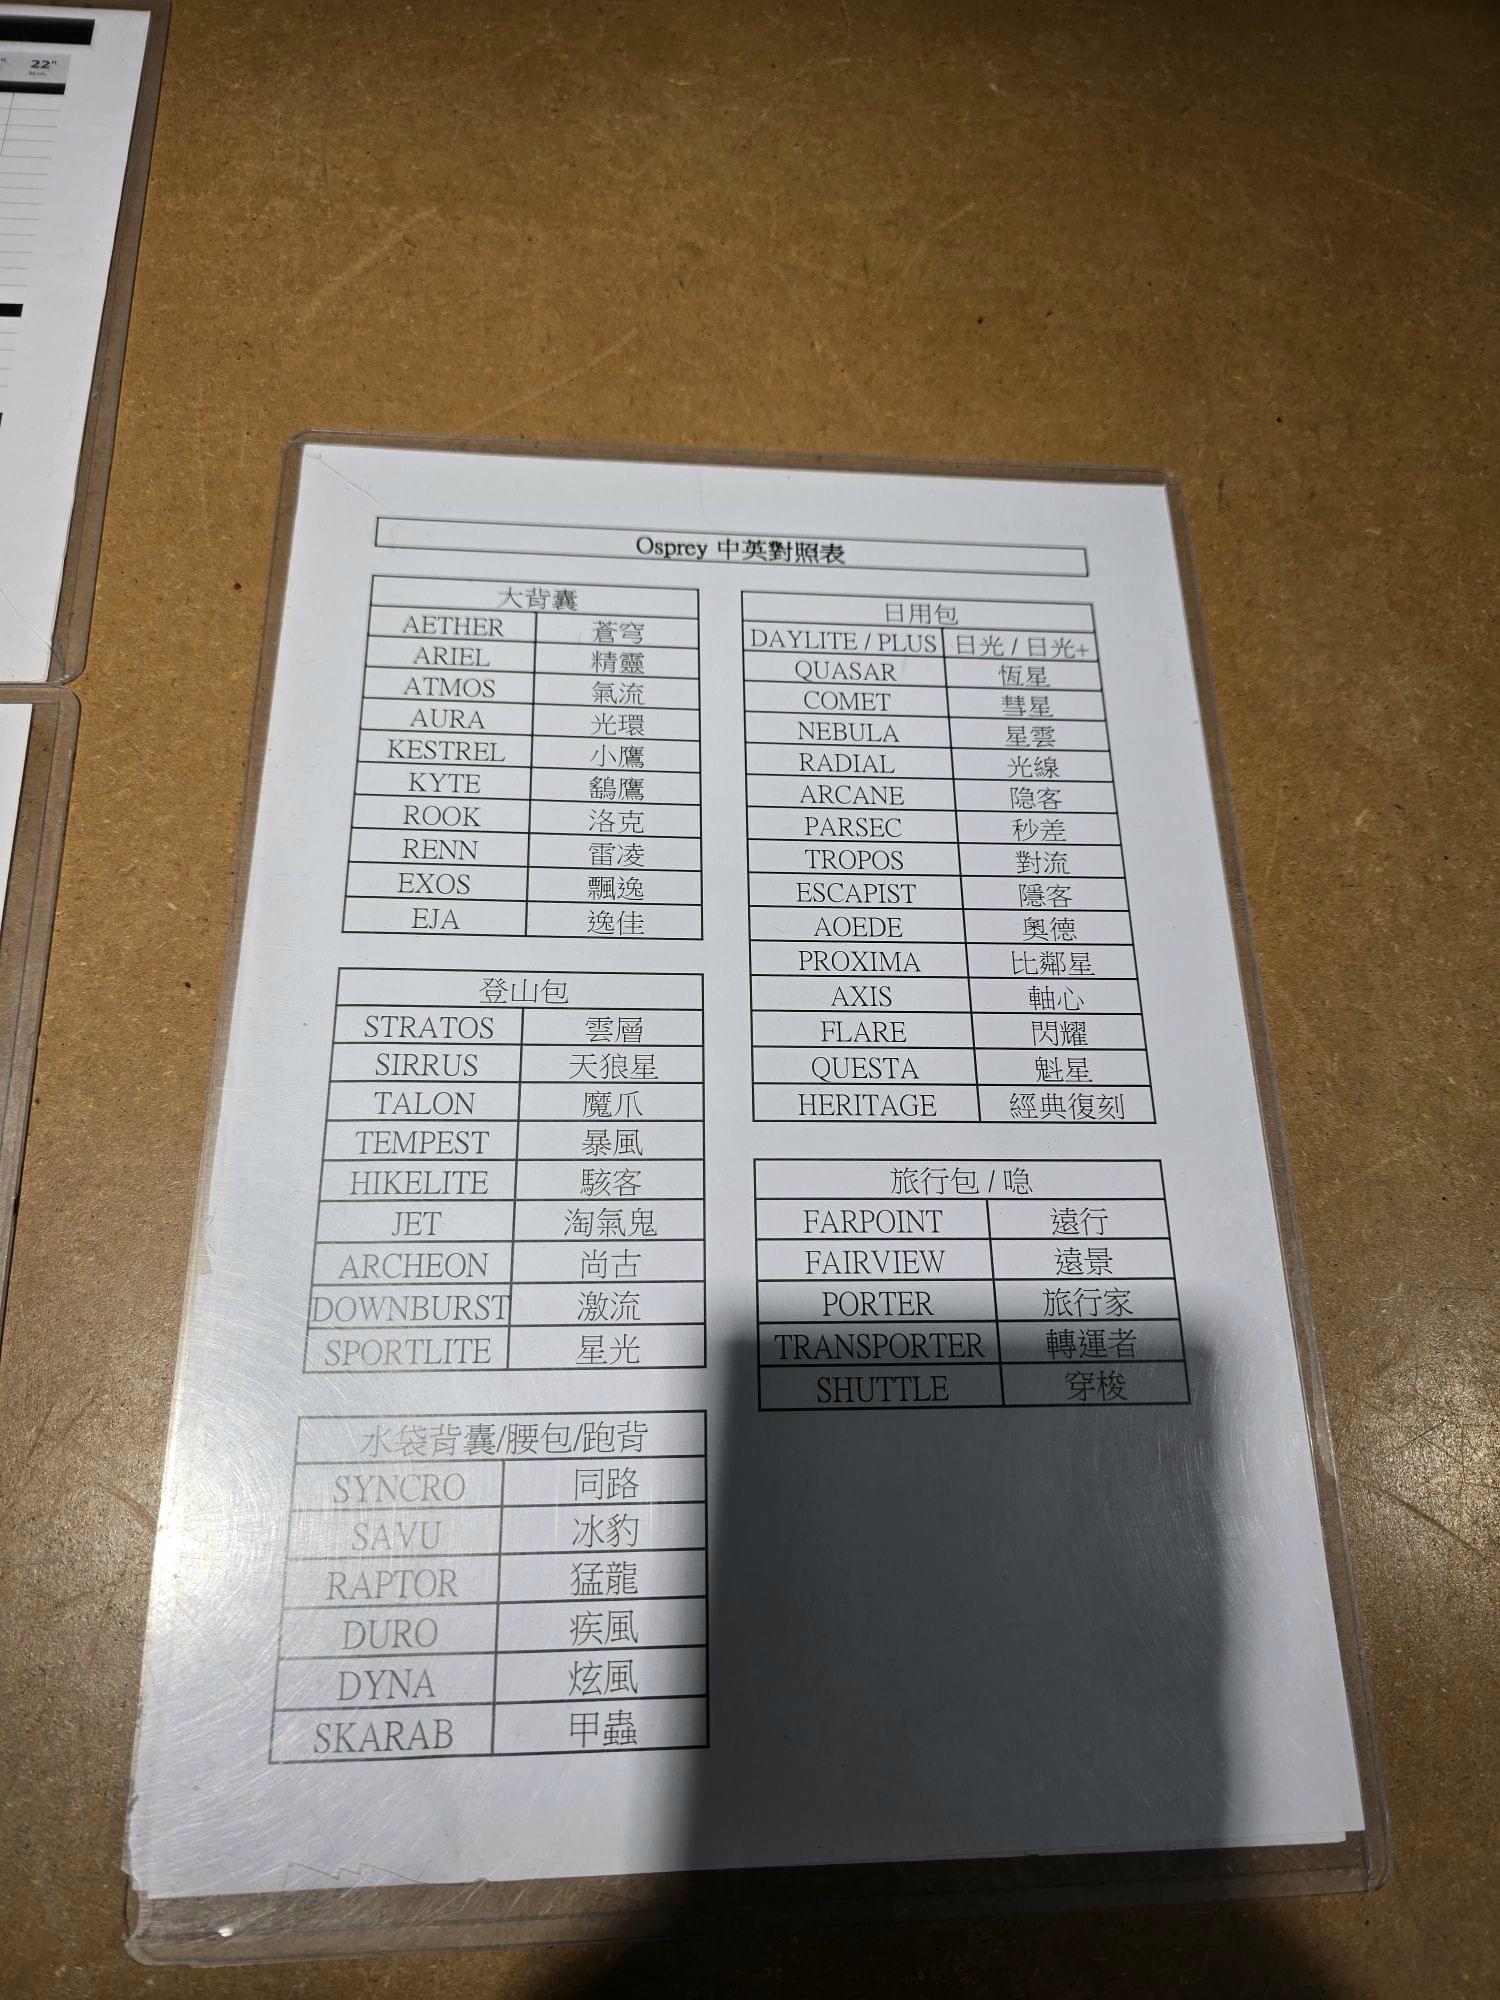 22"
Osprey 中英對照表
大背囊
AETHER 蒼穹
ARIEL 精靈
ATMOS 氣流
AURA 光環
KESTREL 小鷹
KYTE 鷂鷹
ROOK 洛克
RENN 雷凌
EXOS 飄逸
EJA 逸佳
登山包
STRATOS 雲層
SIRRUS 天狼星
TALON 魔爪
TEMPEST 暴風
HIKELITE 駭客
JET 淘氣鬼
ARCHEON 尚古
DOWNBURST 激流
SPORTLITE 星光
水袋背囊/腰包/跑背
SYNCRO 同路
SAVU 冰豹
RAPTOR 猛龍
DURO 疾風
DYNA 炫風
SKARAB 甲蟲
日用包
DAYLITE / PLUS 日光 / 日光+
QUASAR 恆星
COMET 彗星
NEBULA 星雲
RADIAL 光線
ARCANE 隐客
PARSEC 秒差
TROPOS 對流
ESCAPIST 隱客
AOEDE 奧德
PROXIMA 比鄰星
AXIS 軸心
FLARE 閃耀
QUESTA 魁星
HERITAGE 經典復刻
旅行包 / 喼
FARPOINT 遠行
FAIRVIEW 遠景
PORTER 旅行家
TRANSPORTER 轉運者
SHUTTLE 穿梭